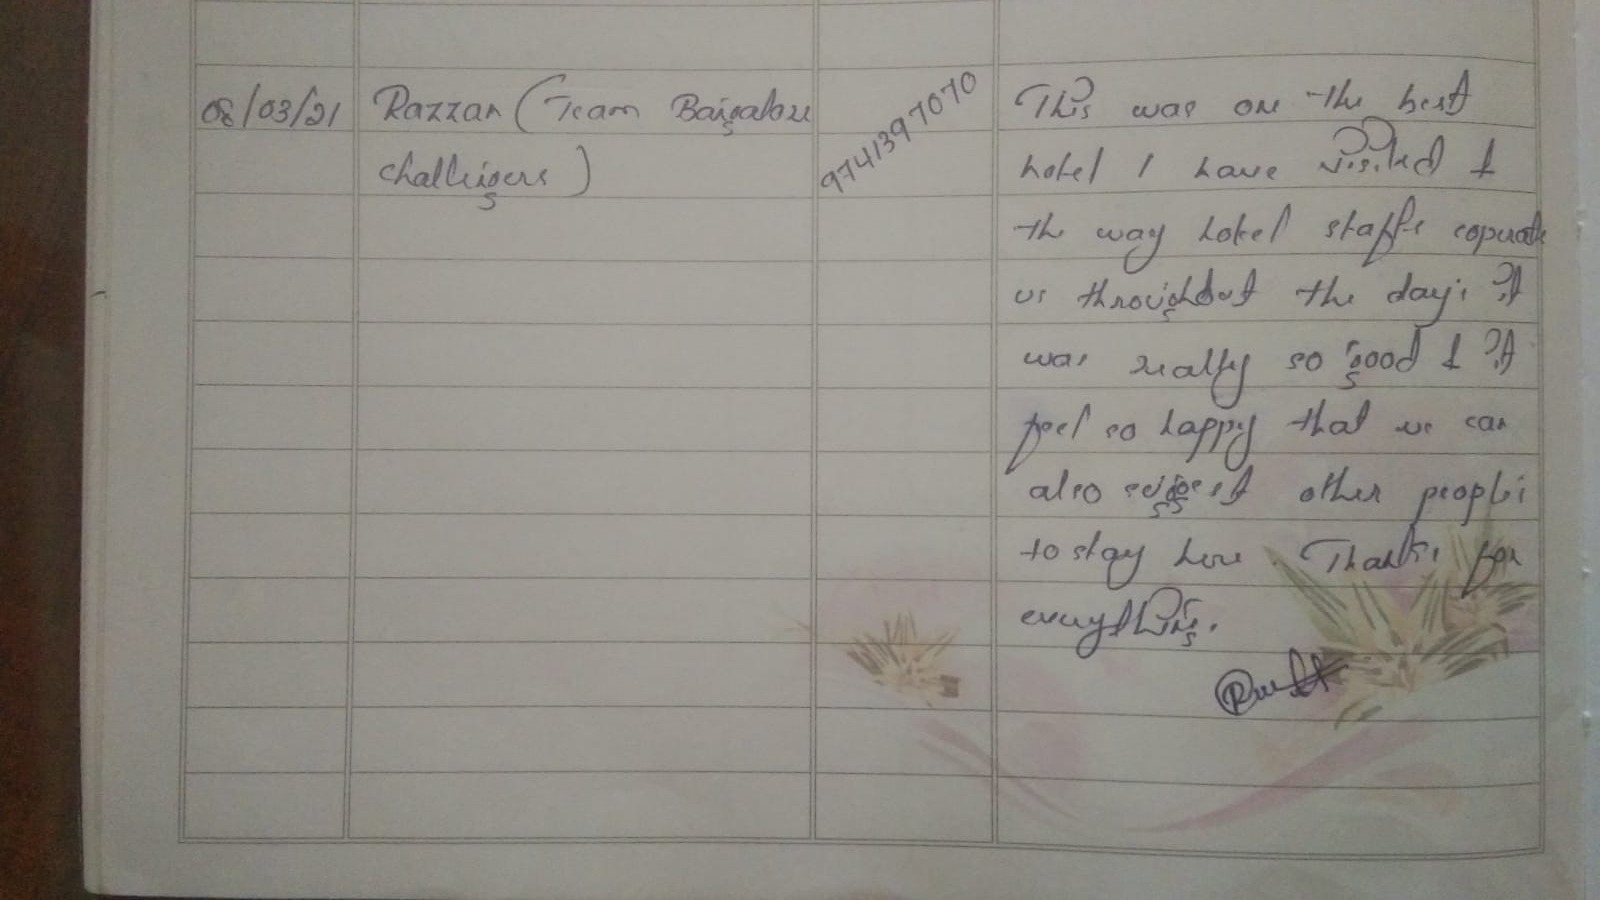 08/03/21
Razzan (Team Bangalore
challengers)
9741397070
This was one the best
hotel I have visited &
the way hotel staffs coperate
us throughout the day's it
was really so good & it
feel so happy that we can
also suggest other people's
to stay here. Thanks for
everything.